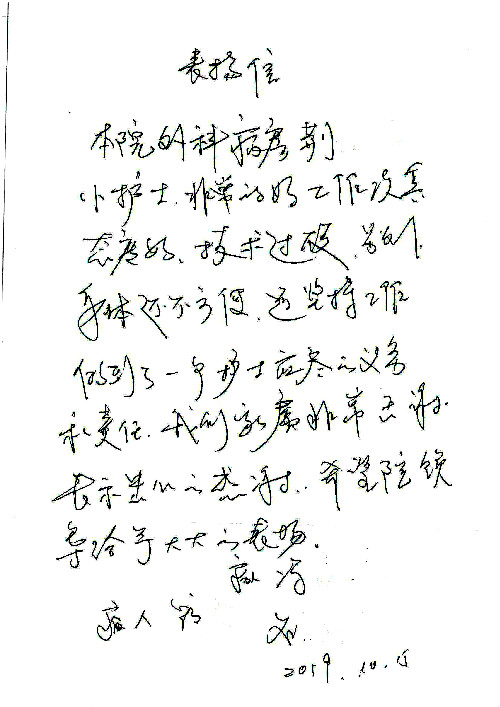 表扬信
本院外科病房荆
小护士,非常的好工作认真
态度好、技术过硬,
身体还不方便,还坚持工作
做到了一个护士应尽的义务
和责任,我们家属非常感谢
表示衷心的感谢,希望院领
导给予大大的表扬。
病人
2019.10.15